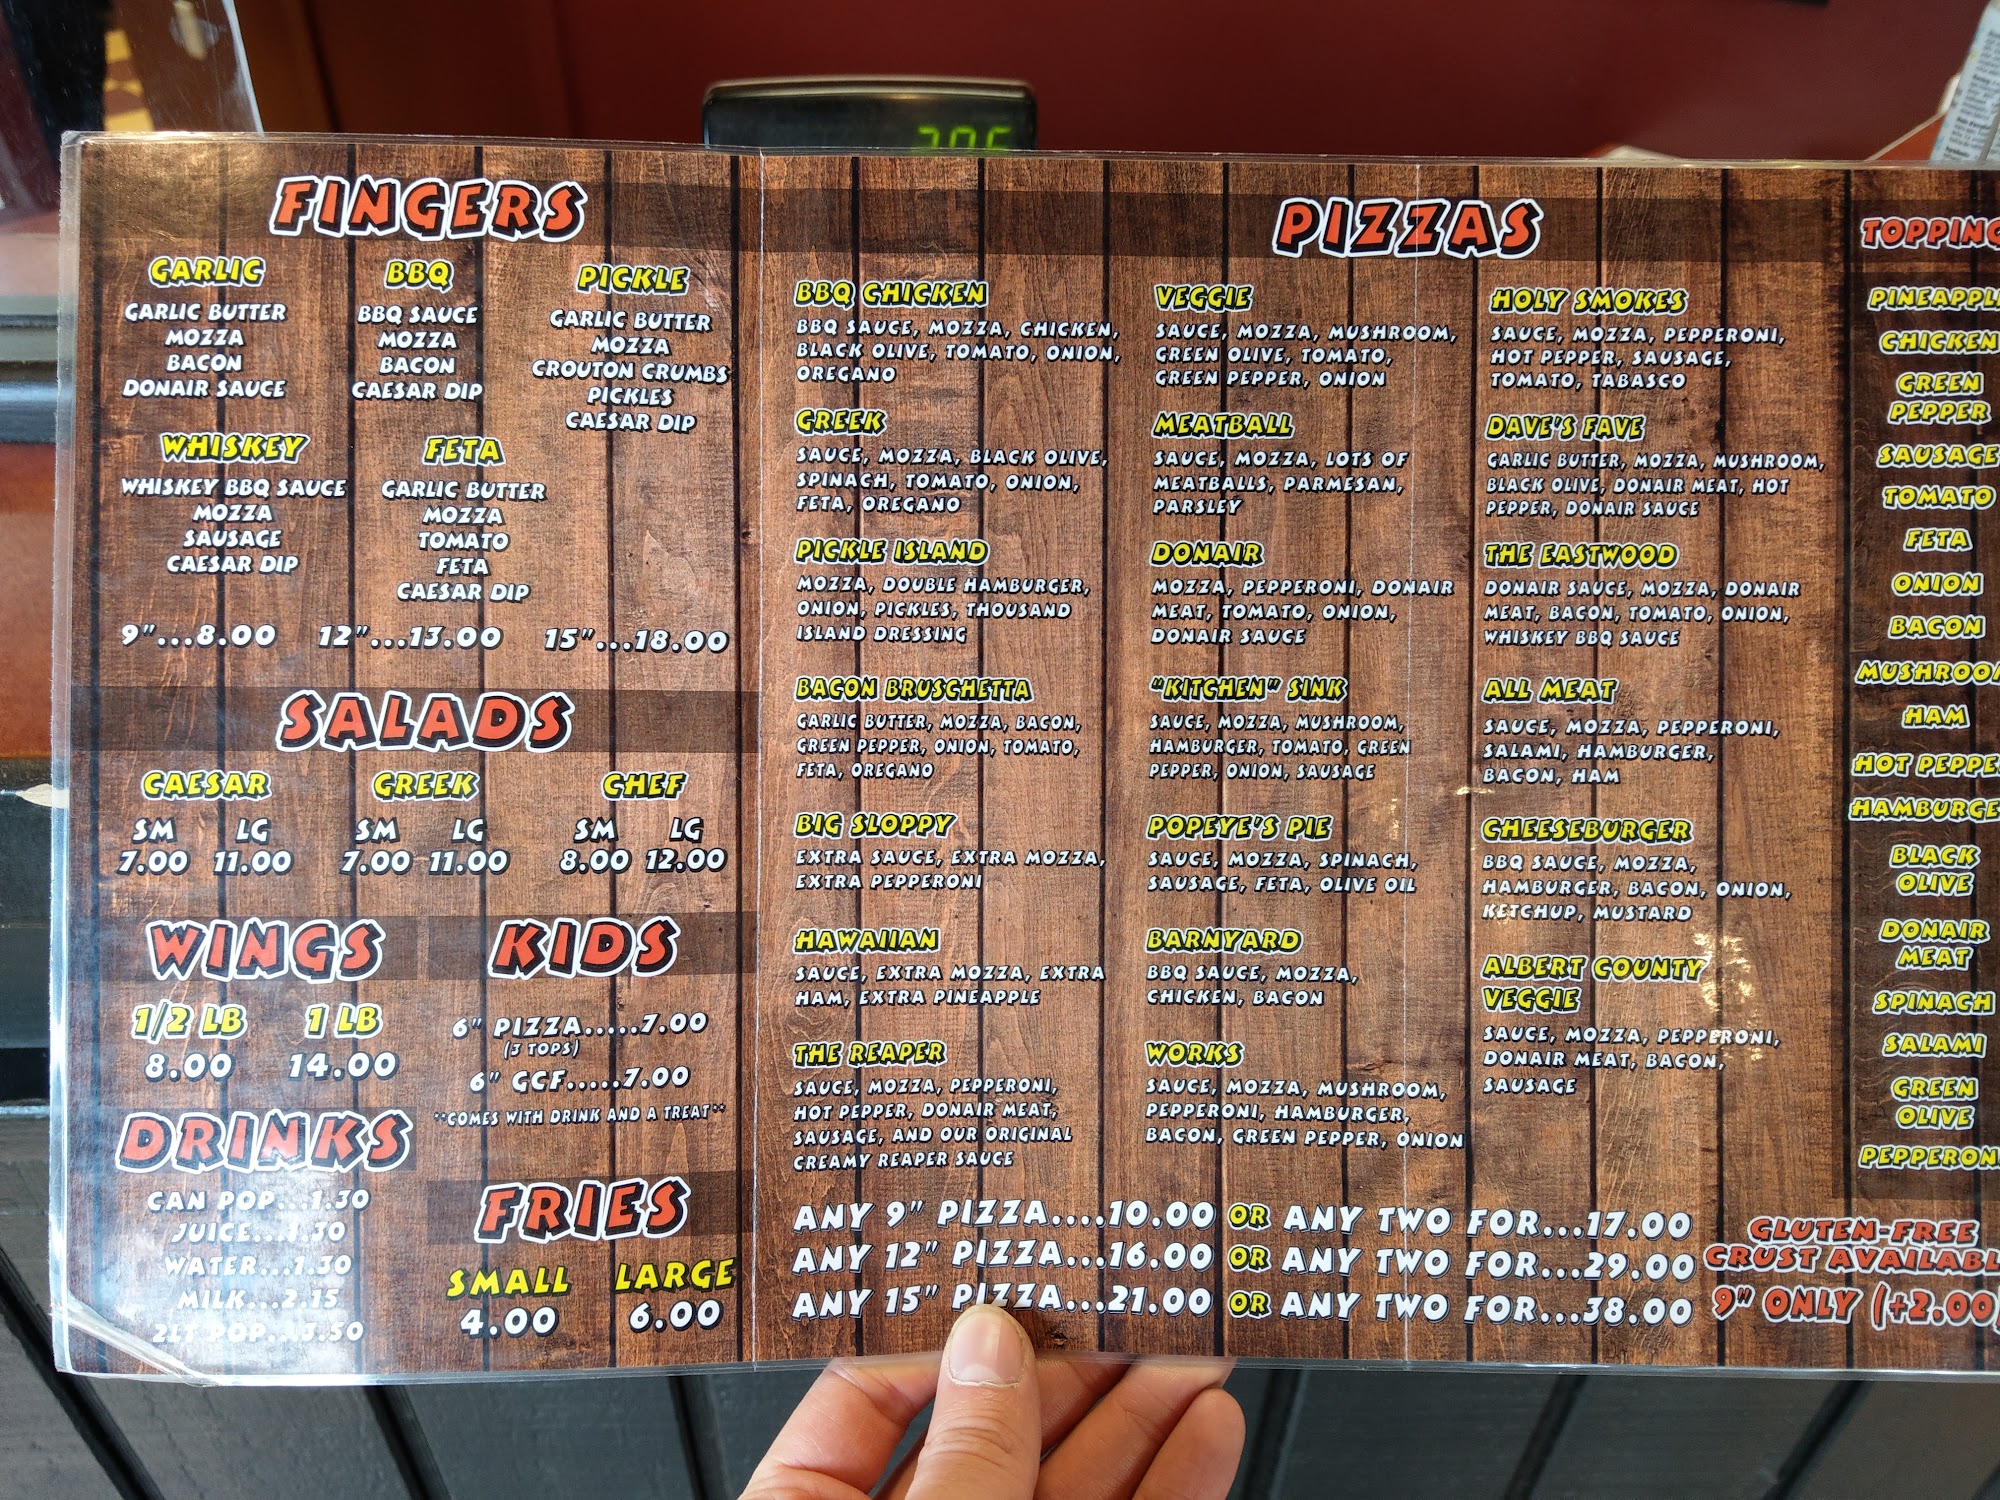 FINGERS
GARLIC
GARLIC BUTTER
MOZZA
BACON
DONAIR SAUCE
BBQ
BBQ SAUCE
MOZZA
BACON
CAESAR DIP
PICKLE
GARLIC BUTTER
MOZZA
CROUTON CRUMBS
PICKLES
CAESAR DIP
WHISKEY
WHISKEY BBQ SAUCE
MOZZA
SAUSAGE
CAESAR DIP
FETA
GARLIC BUTTER
MOZZA
TOMATO
FETA
CAESAR DIP
9"...8.00 12"...13.00 15"...18.00
SALADS
CAESAR
SM LG
7.00 11.00
GREEK
SM LG
7.00 11.00
CHEF
SM LG
8.00 12.00
WINGS
1/2 LB 1 LB
8.00 14.00
KIDS
6" PIZZA.....7.00
(3 TOPS)
6" GCF.....7.00
**COMES WITH DRINK AND A TREAT**
DRINKS
CAN POP...1.30
JUICE...1.30
WATER...1.30
MILK...2.15
2LT POP...3.50
FRIES
SMALL LARGE
4.00 6.00
PIZZAS
BBQ CHICKEN
BBQ SAUCE, MOZZA, CHICKEN,
BLACK OLIVE, TOMATO, ONION,
OREGANO
GREEK
SAUCE, MOZZA, BLACK OLIVE,
SPINACH, TOMATO, ONION,
FETA, OREGANO
PICKLE ISLAND
MOZZA, DOUBLE HAMBURGER,
ONION, PICKLES, THOUSAND
ISLAND DRESSING
BACON BRUSCHETTA
GARLIC BUTTER, MOZZA, BACON,
GREEN PEPPER, ONION, TOMATO,
FETA, OREGANO
BIG SLOPPY
EXTRA SAUCE, EXTRA MOZZA,
EXTRA PEPPERONI
HAWAIIAN
SAUCE, EXTRA MOZZA, EXTRA
HAM, EXTRA PINEAPPLE
THE REAPER
SAUCE, MOZZA, PEPPERONI,
HOT PEPPER, DONAIR MEAT,
SAUSAGE, AND OUR ORIGINAL
CREAMY REAPER SAUCE
VEGGIE
SAUCE, MOZZA, MUSHROOM,
GREEN OLIVE, TOMATO,
GREEN PEPPER, ONION
MEATBALL
SAUCE, MOZZA, LOTS OF
MEATBALLS, PARMESAN,
PARSLEY
DONAIR
MOZZA, PEPPERONI, DONAIR
MEAT, TOMATO, ONION,
DONAIR SAUCE
"KITCHEN" SINK
SAUCE, MOZZA, MUSHROOM,
HAMBURGER, TOMATO, GREEN
PEPPER, ONION, SAUSAGE
POPEYE'S PIE
SAUCE, MOZZA, SPINACH,
SAUSAGE, FETA, OLIVE OIL
BARNYARD
BBQ SAUCE, MOZZA,
CHICKEN, BACON
WORKS
SAUCE, MOZZA, MUSHROOM,
PEPPERONI, HAMBURGER,
BACON, GREEN PEPPER, ONION
HOLY SMOKES
SAUCE, MOZZA, PEPPERONI,
HOT PEPPER, SAUSAGE,
TOMATO, TABASCO
DAVE'S FAVE
GARLIC BUTTER, MOZZA, MUSHROOM,
BLACK OLIVE, DONAIR MEAT, HOT
PEPPER, DONAIR SAUCE
THE EASTWOOD
DONAIR SAUCE, MOZZA, DONAIR
MEAT, BACON, TOMATO, ONION,
WHISKEY BBQ SAUCE
ALL MEAT
SAUCE, MOZZA, PEPPERONI,
SALAMI, HAMBURGER,
BACON, HAM
CHEESEBURGER
BBQ SAUCE, MOZZA,
HAMBURGER, BACON, ONION,
KETCHUP, MUSTARD
ALBERT COUNTY
VEGGIE
SAUCE, MOZZA, PEPPERONI,
DONAIR MEAT, BACON,
SAUSAGE
ANY 9" PIZZA....10.00 OR ANY TWO FOR...17.00
ANY 12" PIZZA...16.00 OR ANY TWO FOR...29.00
ANY 15" PIZZA...21.00 OR ANY TWO FOR...38.00
TOPPING
PINEAPPLE
CHICKEN
GREEN
PEPPER
SAUSAGE
TOMATO
FETA
ONION
BACON
MUSHROOM
HAM
HOT PEPPE
HAMBURGE
BLACK
OLIVE
DONAIR
MEAT
SPINACH
SALAMI
GREEN
OLIVE
PEPPERON
GLUTEN-FREE
CRUST AVAILABL
9" ONLY (+2.00)